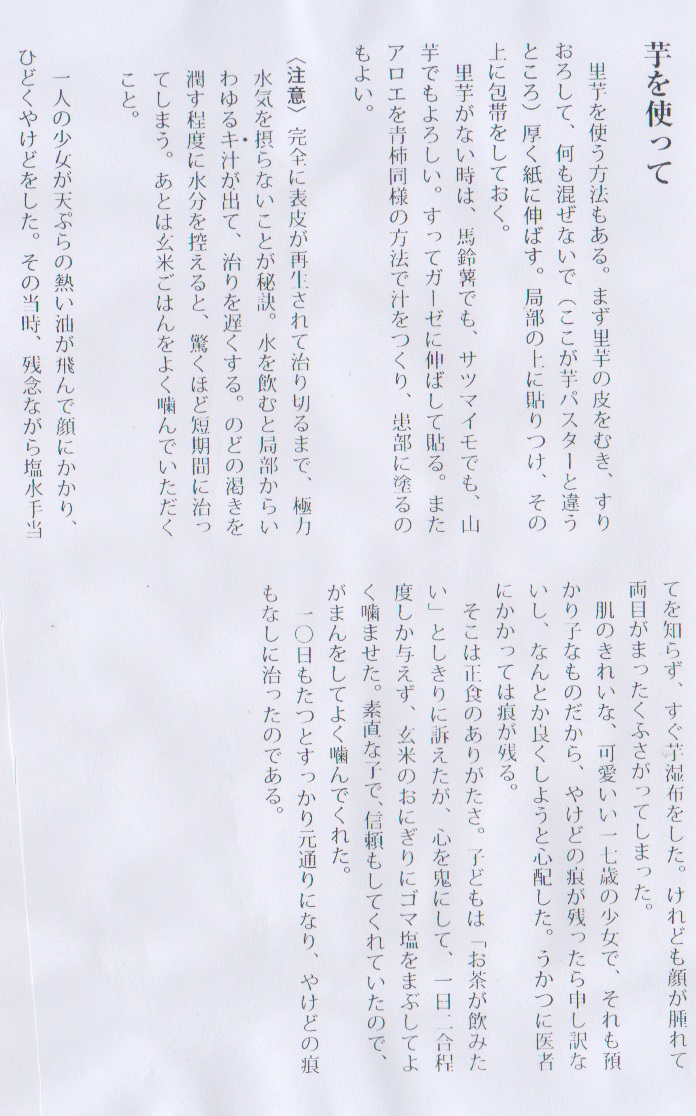 芋を使って
里芋を使う方法もある。まず里芋の皮をむき、すり
おろして、何も混ぜないで（ここが芋パスターと違う
ところ）厚く紙に伸ばす。局部の上に貼りつけ、その
上に包帯をしておく。
里芋がない時は、馬鈴薯でも、サツマイモでも、山
芋でもよろしい。すってガーゼに伸ばして貼る。また
アロエを青柿同様の方法で汁をつくり、患部に塗るの
もよい。
〈注意〉完全に表皮が再生されて治り切るまで、極力
水気を摂らないことが秘訣。水を飲むと局部からい
わゆるキ汁が出て、治りを遅くする。のどの渇きを
潤す程度に水分を控えると、驚くほど短期間に治っ
てしまう。あとは玄米ごはんをよく噛んでいただく
こと。
一人の少女が天ぷらの熱い油が飛んで顔にかかり、
ひどくやけどをした。その当時、残念ながら塩水手当
てを知らず、すぐ芋湿布をした。けれども顔が腫れて
両目がまったくふさがってしまった。
肌のきれいな、可愛いい一七歳の少女で、それも預
かり子なものだから、やけどの痕が残ったら申し訳な
いし、なんとか良くしようと心配した。うかつに医者
にかかっては痕が残る。
そこは正食のありがたさ。子どもは「お茶が飲みた
い」としきりに訴えたが、心を鬼にして、一日二合程
度しか与えず、玄米のおにぎりにゴマ塩をまぶしてよ
く噛ませた。素直な子で、信頼もしてくれていたので、
がまんをしてよく噛んでくれた。
一〇日もたつとすっかり元通りになり、やけどの痕
もなしに治ったのである。